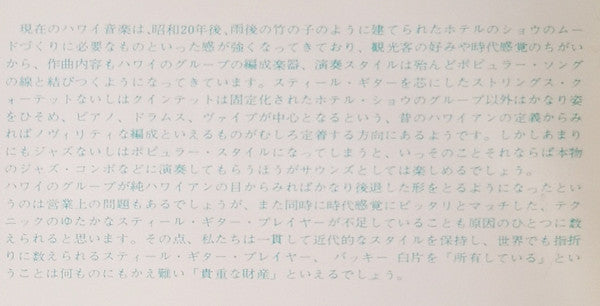 現在のハワイ音楽は、昭和20年後、雨後の竹の子のように建てられたホテルのショウのムー
ドづくりに必要なものといった感が強くなってきており、観光客の好みや時代感覚のちがい
から、作曲内容もハワイのグループの編成楽器、演奏スタイルは殆んどポピュラー・ソング
の線と結びつくようになってきています。スティール・ギターを芯にしたストリングス・ク
ォーテットないしはクインテットは固定化されたホテル・ショウのグループ以外はかなり姿
をひそめ、ピアノ、ドラムス、ヴァイブが中心となるという、昔のハワイアンの定義からみ
ればノヴィリティな編成といえるものがむしろ定着する方向にあるようです。しかしあまり
にもジャズないしはポピュラー・スタイルになってしまうと、いっそのことそれならば本物
のジャズ・コンボなどに演奏してもらうほうがサウンズとしては楽しめるでしょう。
ハワイのグループが純ハワイアンの目からみればかなり後退した形をとるようになったとい
うのは営業上の問題もあるでしょうが、また同時に時代感覚にピッタリとマッチした、テク
ニックのゆたかなスティール・ギター・プレイヤーが不足していることも原因のひとつに数
えられると思います。その点、私たちは一貫して近代的なスタイルを保持し、世界でも指折
りに数えられるスティール・ギター・プレイヤー、バッキー 白片を「所有している」とい
うことは何ものにもかえ難い「貴重な財産」といえるでしょう。